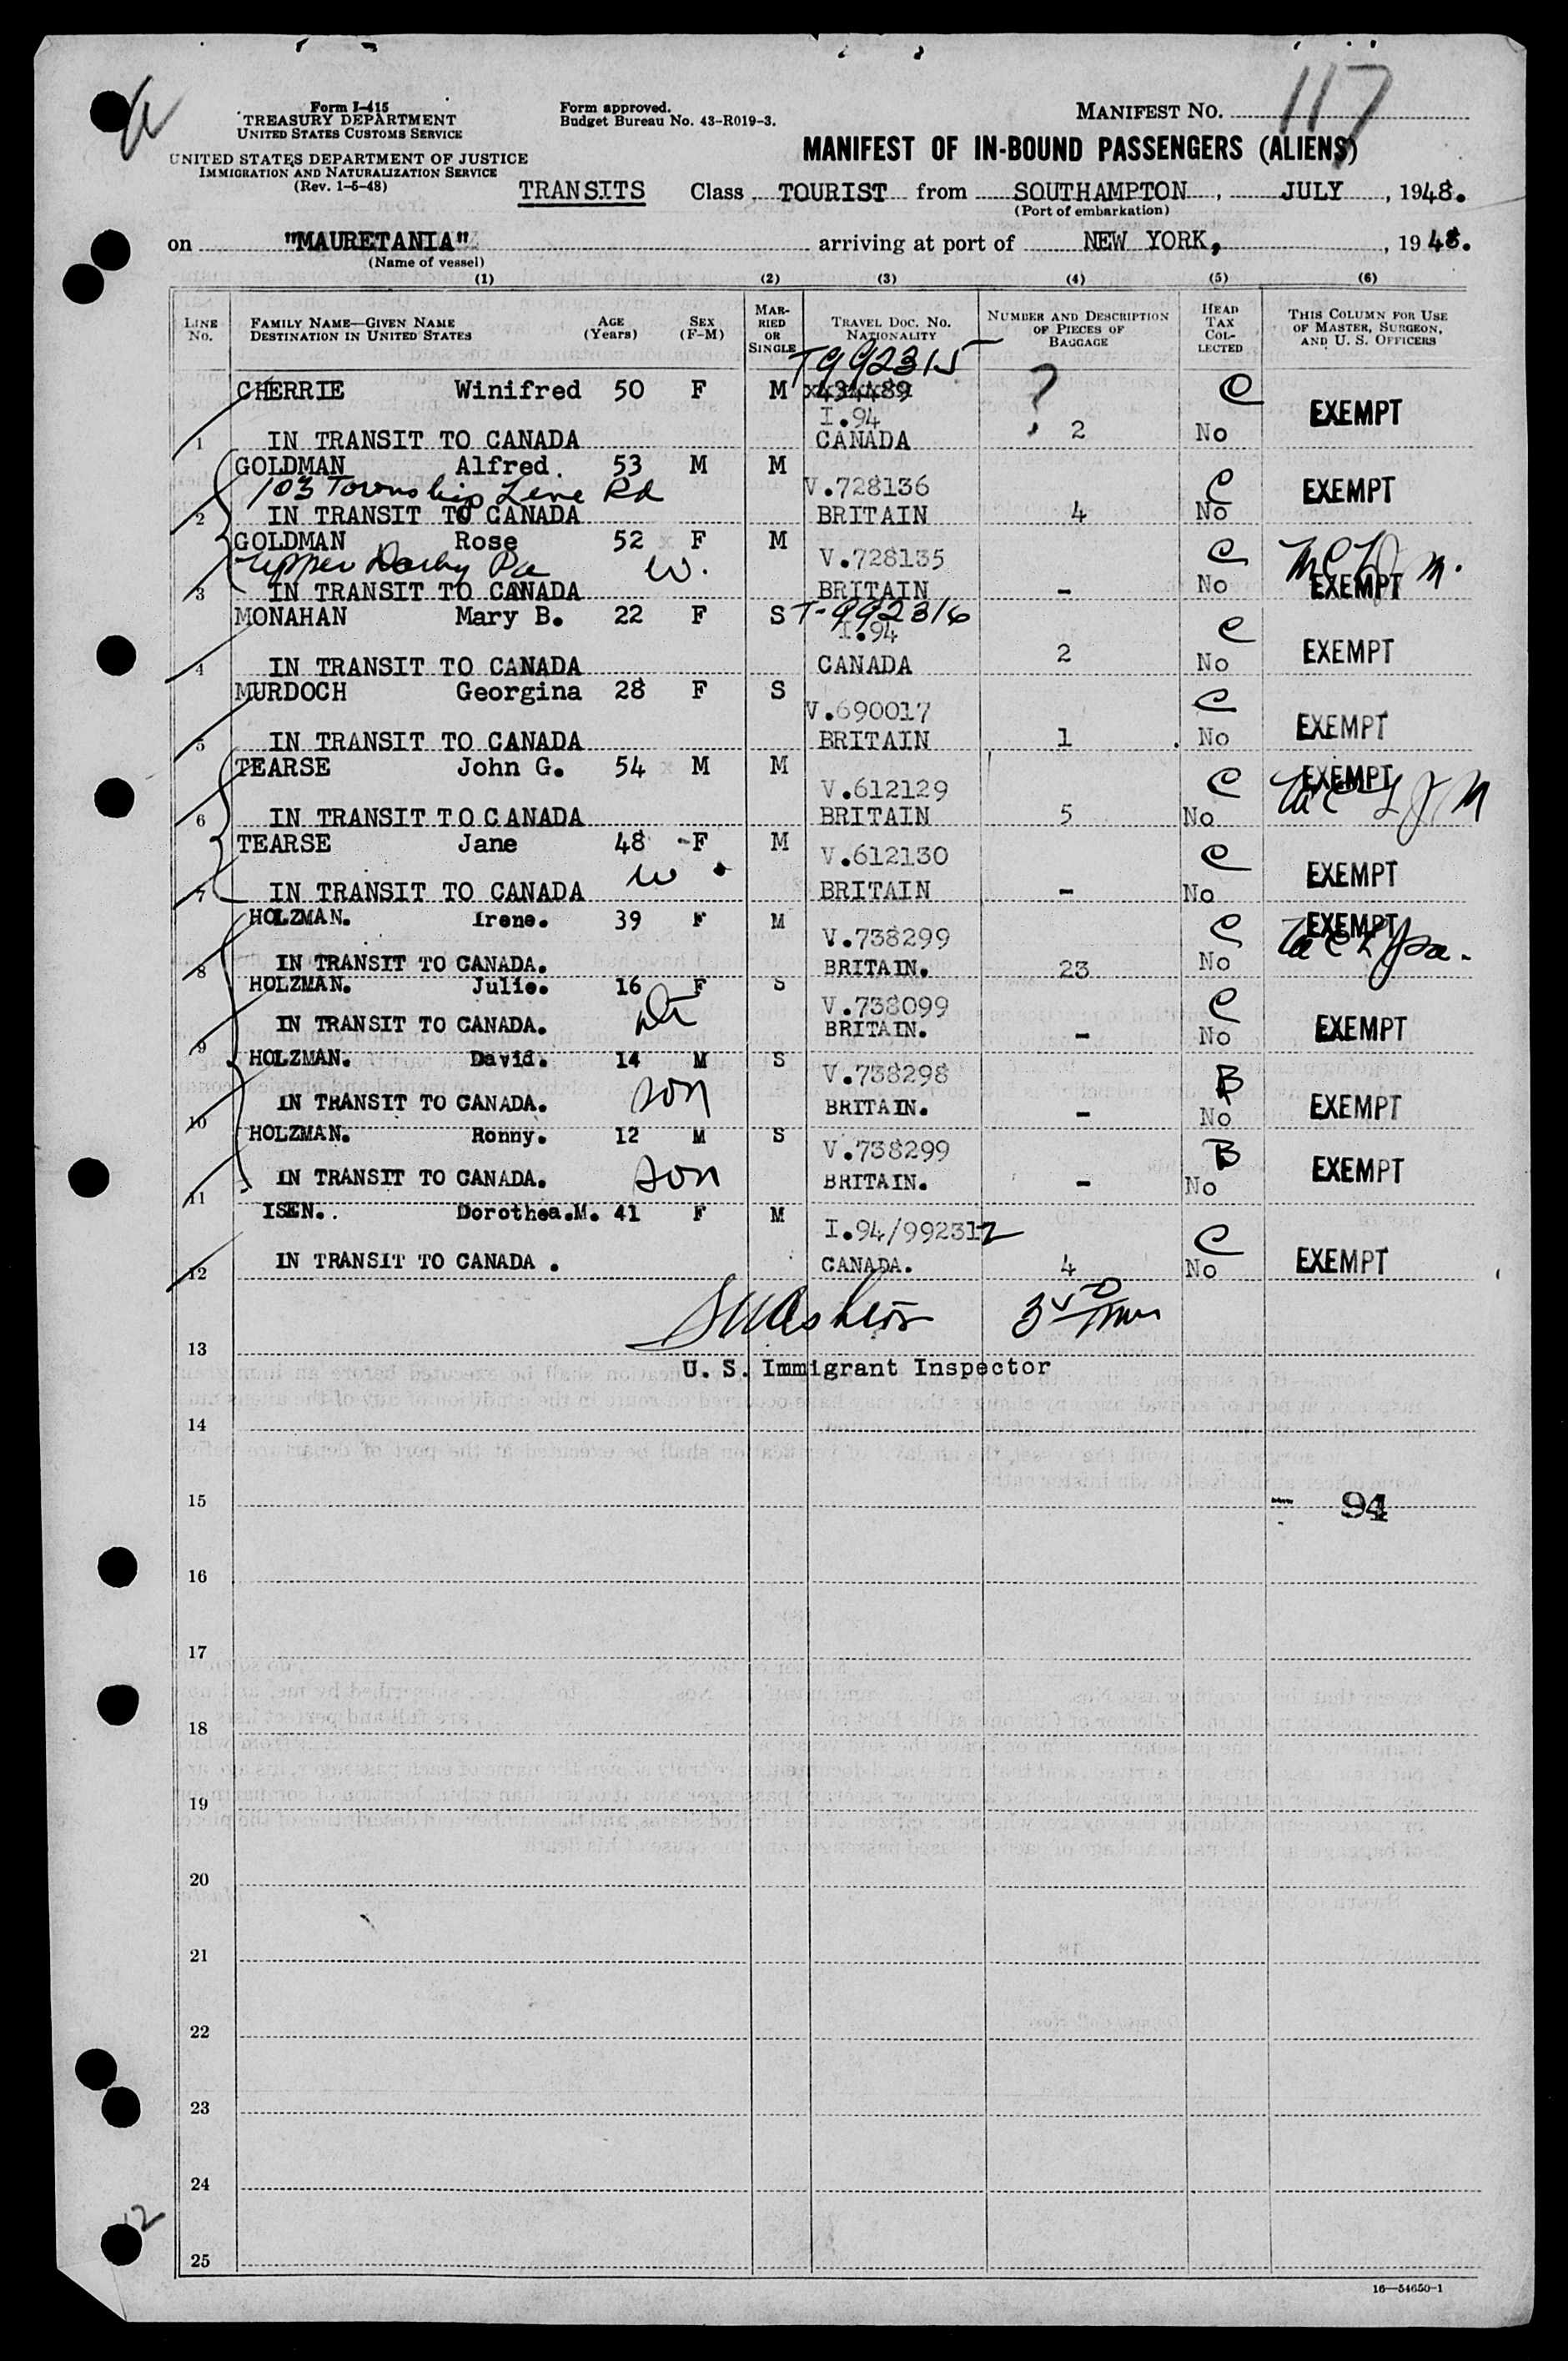 Form I-415
TREASURY DEPARTMENT
UNITED STATES CUSTOMS SERVICE
UNITED STATES DEPARTMENT OF JUSTICE
IMMIGRATION AND NATURALIZATION SERVICE
(Rev. 1-5-48)
Form approved.
Budget Bureau No. 43-R019-3.
MANIFEST NO. 117
MANIFEST OF IN-BOUND PASSENGERS (ALIENS)
TRANSITS Class TOURIST from SOUTHAMPTON, JULY, 1948.
(Port of embarkation)
on "MAURETANIA" arriving at port of NEW YORK, , 1948.
(Name of vessel)
(1) (2) (3) (4) (5) (6)
LINE No. FAMILY NAME—GIVEN NAME DESTINATION IN UNITED STATES AGE (Years) SEX (F-M) MARRIED OR SINGLE TRAVEL DOC. NO. NATIONALITY NUMBER AND DESCRIPTION OF PIECES OF BAGGAGE HEAD TAX COLLECTED THIS COLUMN FOR USE OF MASTER, SURGEON, AND U. S. OFFICERS
T992315
CHERRIE Winifred 50 F M 434489 ? C
I.94 EXEMPT
1 IN TRANSIT TO CANADA CANADA 2 No
GOLDMAN Alfred. 53 M M
103 Township Line Rd V.728136 C EXEMPT
2 IN TRANSIT TO CANADA BRITAIN 4 No
GOLDMAN Rose 52 F M
Upper Darby Pa W. V.728135 C
3 IN TRANSIT TO CANADA BRITAIN - No EXEMPT
MONAHAN Mary B. 22 F S T-992316
I.94 C EXEMPT
4 IN TRANSIT TO CANADA CANADA 2 No
MURDOCH Georgina 28 F S
V.690017 C EXEMPT
5 IN TRANSIT TO CANADA BRITAIN 1 No
TEARSE John G. 54 M M EXEMPT
V.612129 C
6 IN TRANSIT TO CANADA BRITAIN 5 No
TEARSE Jane 48 F M
W. V.612130 C EXEMPT
7 IN TRANSIT TO CANADA BRITAIN - No
HOLZMAN. Irene. 39 F M EXEMPT
V.738299 C
8 IN TRANSIT TO CANADA. BRITAIN. 23 No
HOLZMAN. Julie. 16 F S
V.738099 C
9 IN TRANSIT TO CANADA. BRITAIN. - No EXEMPT
HOLZMAN. David. 14 M S
V.738298 B
10 IN TRANSIT TO CANADA. son BRITAIN. - No EXEMPT
HOLZMAN. Ronny. 12 M S
V.738299 B
11 IN TRANSIT TO CANADA. son BRITAIN. - No EXEMPT
ISEN.. Dorothea.M. 41 F M
I.94/992312 C
12 IN TRANSIT TO CANADA . CANADA. 4 No EXEMPT
13
U. S. Immigrant Inspector
14
15 94
16
17
18
19
20
21
22
23
24
12
25
16—54650-1